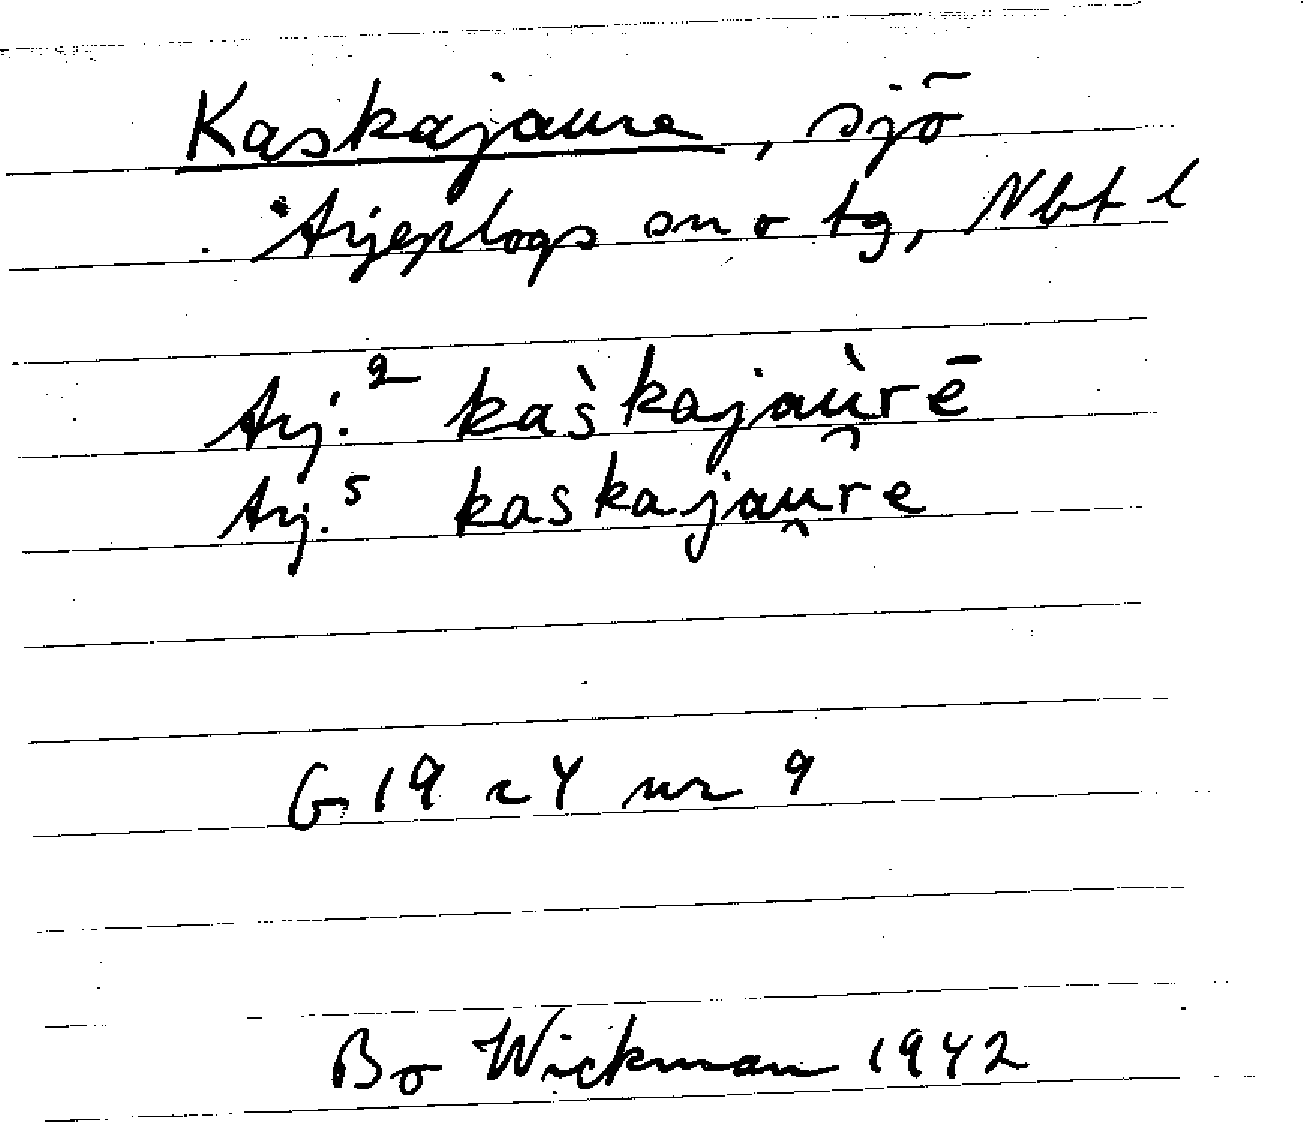 Kaskajaure, sjö
Arjeplogs sn o tg, Nbt l
Arj.² kaš̀kajaù̯rē
Arj.⁵ kaskajau̯re
G 19 c 4 nr 9
Bo Wickman 1942